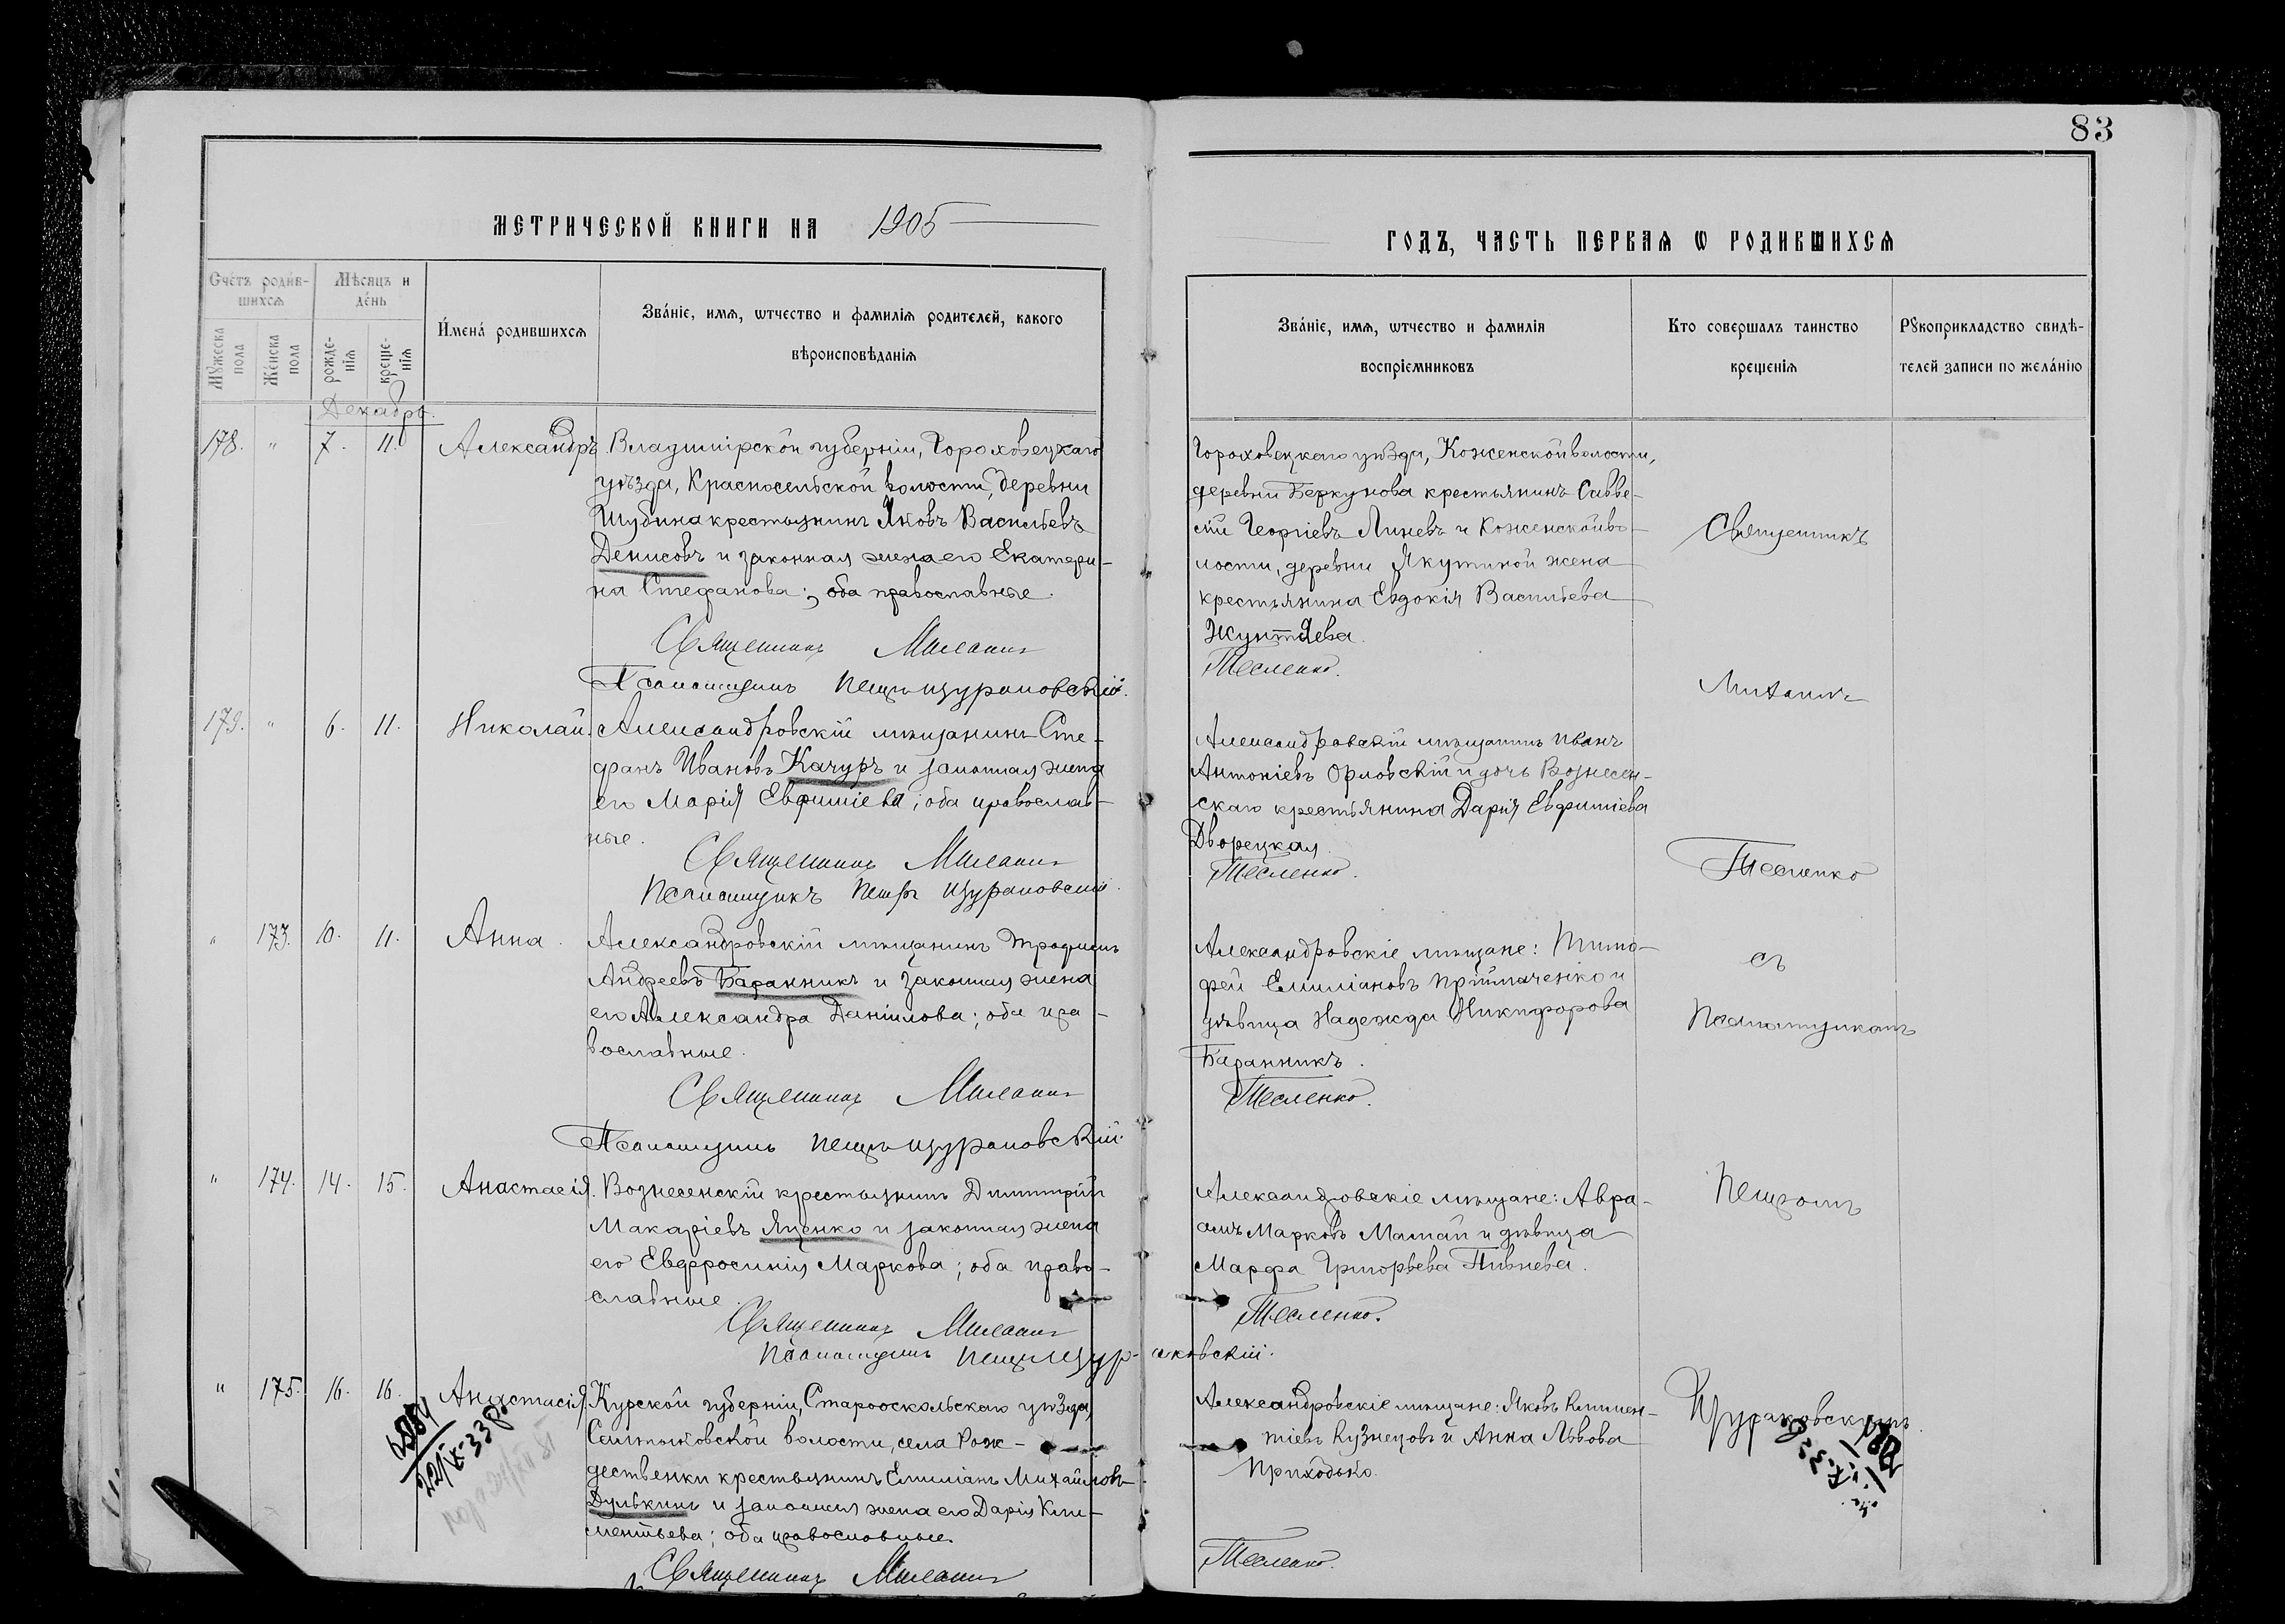 83
МЕТРИЧЕСКОЙ КНИГИ НА 1905
ГОДЪ, ЧАСТЬ ПЕРВАЯ Ѡ РОДИВШИХСЯ
Счетъ родившихся
Мѣсяцъ и день
Имена родившихся
Званіе, имя, ѡтчество и фамилія родителей, какого вѣроисповѣданія
Мужеска пола
Женска пола
рожденія
крещенія
Званіе, имя, ѡтчество и фамилія воспріемниковъ
Кто совершалъ таинство крещенія
Рукоприкладство свидѣтелей записи по желанію
Декабрь.
178. " 7. 11. Александръ.
Владимірской губерніи, Гороховецкаго
уѣзда, Красносельской волости, деревни
Шубина крестьянинъ Яковъ Васильевъ
Денисовъ и законная жена его Екатери-
на Стефанова; оба православные.
Священникъ
Псаломщикъ Петръ Цураковскій.
Гороховецкаго уѣзда, Коженской волости,
деревни Беркунова крестьянинъ Савве-
тій Георгіевъ Линевъ и Коженской во-
лости, деревни Якутиной жена
крестьянина Евдокія Васильева
Жунтяева.
Тесленко.
179. " 6. 11. Николай.
Александровскій мѣщанинъ Сте-
фанъ Ивановъ Качуръ и законная жена
его Марія Евфиміева; оба православ-
ные.
Священникъ
Псаломщикъ Петръ Цураковскій.
Александровскій мѣщанинъ Иванъ
Антоніевъ Орловскій и дочь Вознесен-
скаго крестьянина Дарія Евфиміева
Дворецкая.
Тесленко.
" 173. 10. 11. Анна.
Александровскій мѣщанинъ Трофимъ
Андреевъ Баранникъ и законная жена
его Александра Даніилова; оба пра-
вославные.
Священникъ
Псаломщикъ Петръ Цураковскій.
Александровскіе мѣщане: Тимо-
фей Емиліановъ Приймаченко и
дѣвица Надежда Никифорова
Баранникъ.
Тесленко.
" 174. 14. 15. Анастасія.
Вознесенскій крестьянинъ Димитрій
Макаріевъ Яценко и законная жена
его Евфросинія Маркова; оба право-
славные.
Священникъ
Псаломщикъ Петръ Цураковскій.
Александровскіе мѣщане: Авра-
амъ Марковъ Мамай и дѣвица
Марфа Григорьева Пивнева.
Тесленко.
" 175. 16. 16. Анастасія.
Курской губерніи, Старооскольскаго уѣзда,
Салтыковской волости, села Рож-
дественки крестьянинъ Емиліанъ Михайловъ
Дулькинъ и законная жена его Дарія Кли-
ментьева; оба православные.
Священникъ
Александровскіе мѣщане: Яковъ Климен-
тіевъ Кузнецовъ и Анна Львова
Приходько.
Тесленко.
Священникъ
Тесленко
съ
Псаломщикомъ
Петромъ
Цураковскимъ.